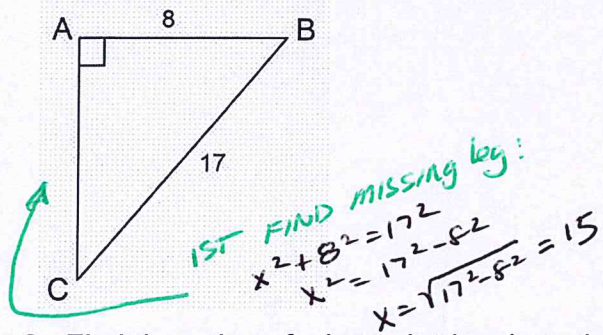 8
A
B
17
C
1ST FIND MISSING leg:
x² + 8² = 17²
x² = 17² - 8²
x = √17² - 8² = 15